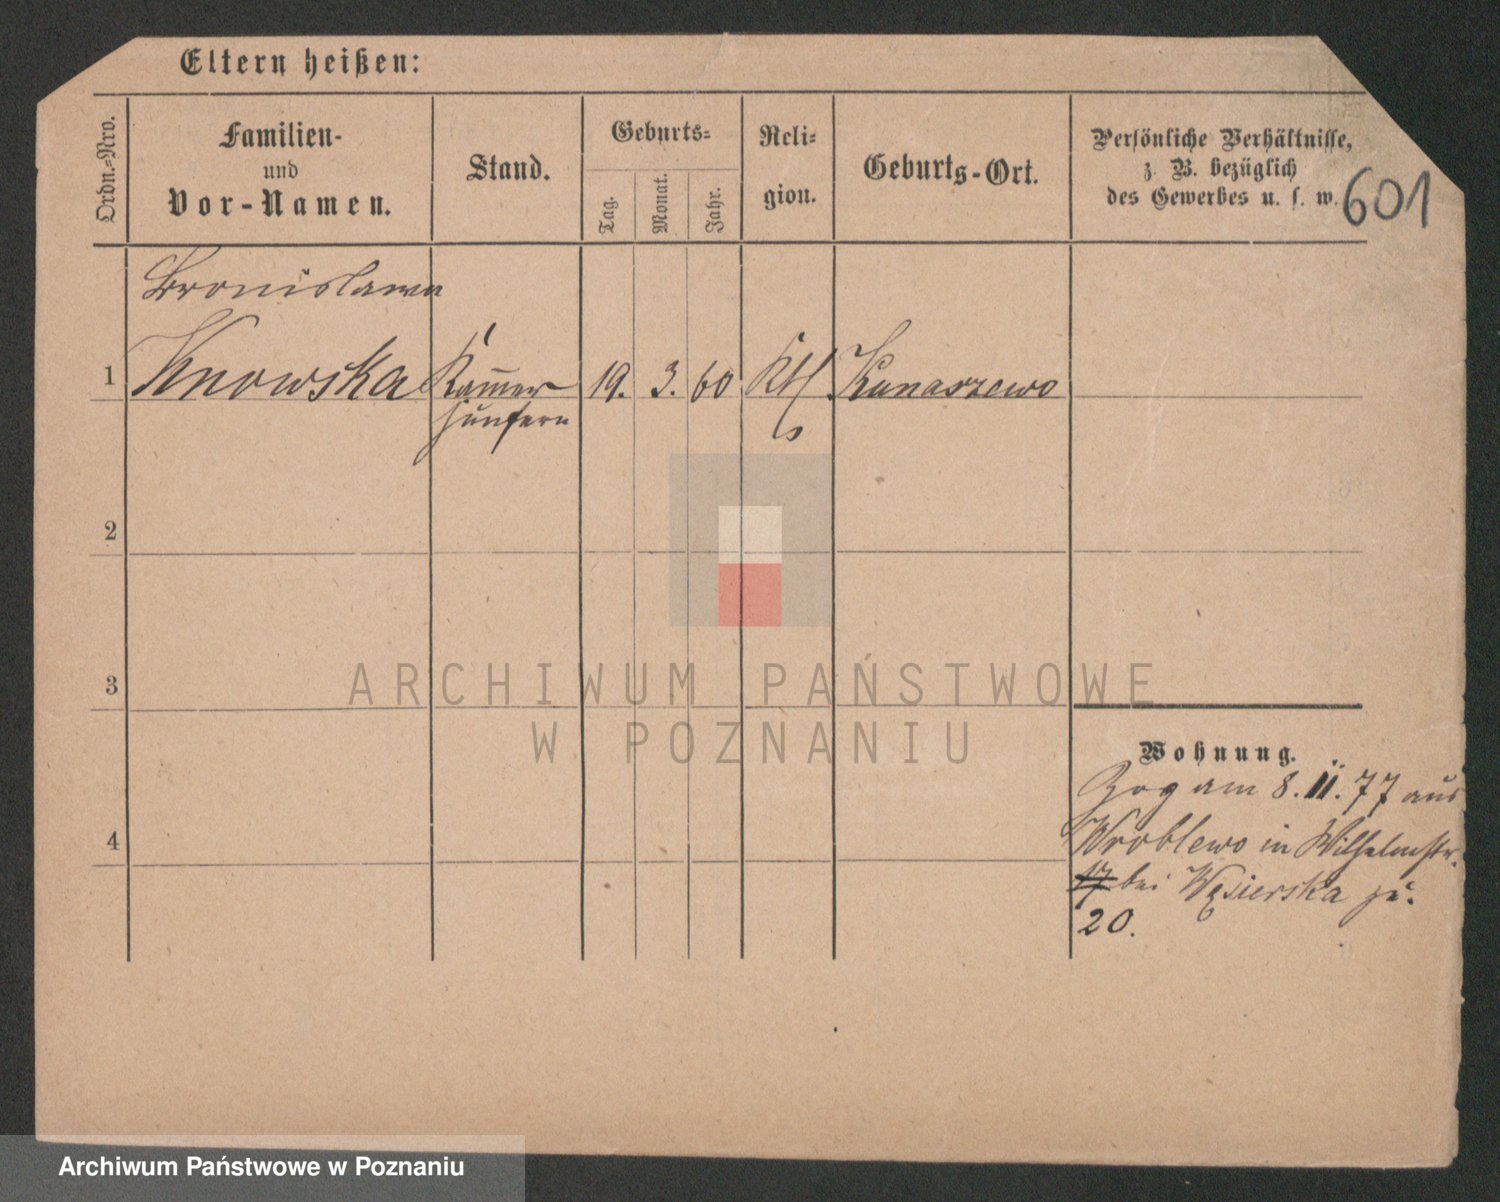 Eltern heißen:
Ordn.=Nro.
Familien-
und
Vor-Namen.
Stand.
Geburts=
Tag.
Monat.
Jahr.
Reli=
gion.
Geburts-Ort.
Persönliche Verhältnisse,
z. B. bezüglich
des Gewerbes u. s. w.
601
Bronislawa
1 Knowska Kammer 19. 3. 60 Kth. Kunaszewo
jungfern
2
3
4
Wohnung.
Zog am 8. II. 77 aus
Wroblewo in Wilhelmstr.
17 bei Węsierska zu.
20.
ARCHIWUM PAŃSTWOWE
W POZNANIU
Archiwum Państwowe w Poznaniu